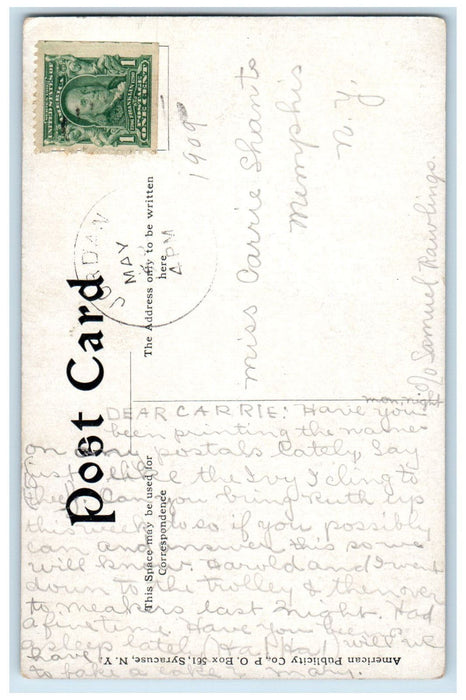 UNITED STATES OF AMERICA
1 1
ONE CENT
JORDAN
MAY
4 PM
1909
Post Card
The Address only to be written
here
Miss Carrie Shants
Memphis
N. Y.
c/o Samuel Rawlings.
This Space may be used for
Correspondence
American Publicity Co., P O. Box 561, Syracuse, N. Y.
mon. night
DEAR CARRIE: Have you
been printing the names
on my postals lately. Say
just like the Ivy I cling to
thee. Can you bring Ruth up
this week do so if you possible
can and answer this so me
will know. Harold and I went
down to the trolley & then over
to meakers last night. Had
a fine time. Have you been
asleep lately (Ha Ha) well we
have to bake a cake. Mary.